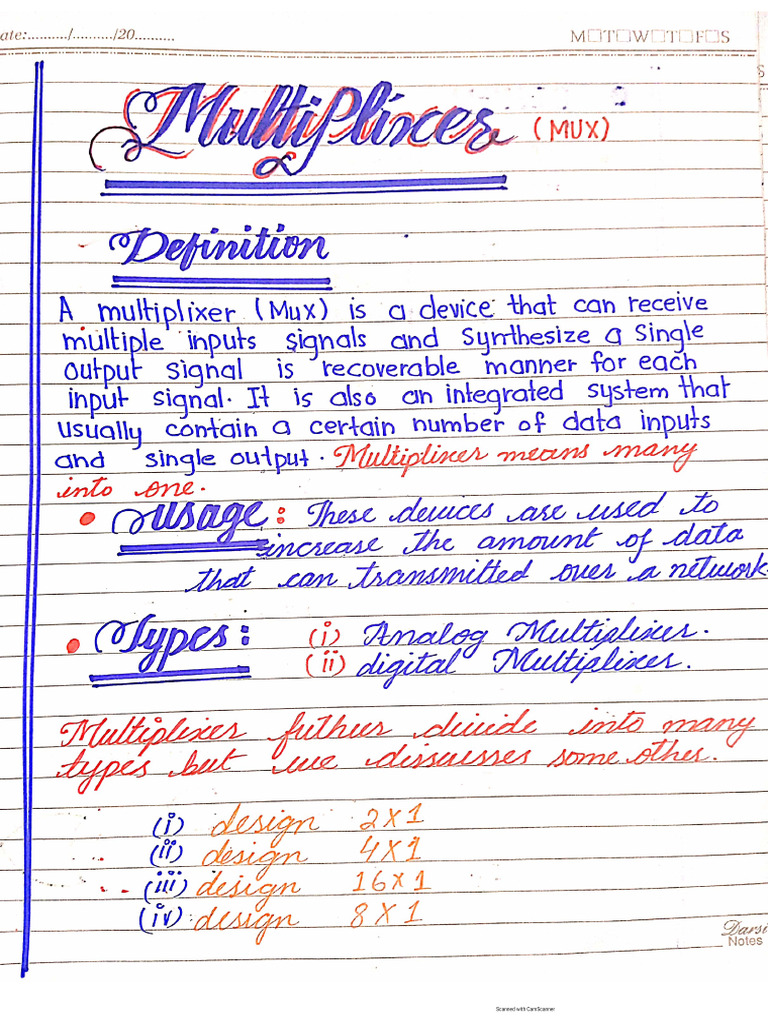 ate:........../........../20..........
M□T□W□T□F□S
Multiplixer (MUX)
Definition
A multiplixer (Mux) is a device that can receive
multiple inputs signals and Synthesize a Single
output signal is recoverable manner for each
input signal. It is also an integrated system that
usually contain a certain number of data inputs
and single output. Multiplixer means many
into one.
• usage: These devices are used to
increase the amount of data
that can transmitted over a network.
• Types: (i) Analog Multiplixer.
(ii) digital Multiplixer.
Multiplixer futher divide into many
types but we discusses some other.
(i) design 2X1
(ii) design 4X1
(iii) design 16X1
(iv) design 8X1
Darsi
Notes
Scanned with CamScanner